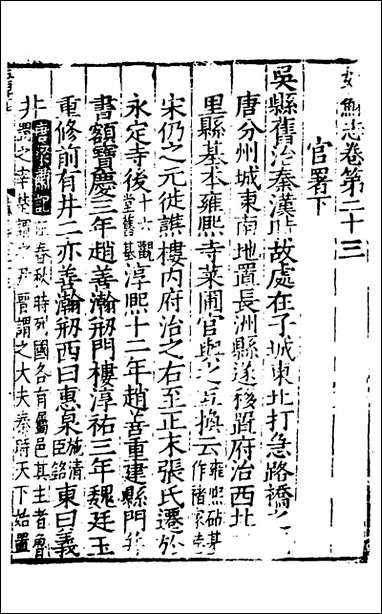 姑蘇志卷第二十三
官署下
吳縣舊治秦漢時故處在子城東北打急路橋之
唐分州城東南地置長洲縣遂移置府治西北
里縣基本雍熙寺菜圃官與之互換云雍熙砧基作褚家
宋仍之元徙譙樓内府治之右至正末張氏遷於
永定寺後十六觀堂舊基淳熙十二年趙善重建縣門
書額寶慶三年趙善瀚剏門樓淳祐三年魏廷玉
重修前有井二亦善瀚剏西曰惠泉施清臣銘東曰義
井唐梁肅記 春秋時列國各有屬邑其主者魯謂之宰楚謂之尹晉謂之大夫秦時天下始置